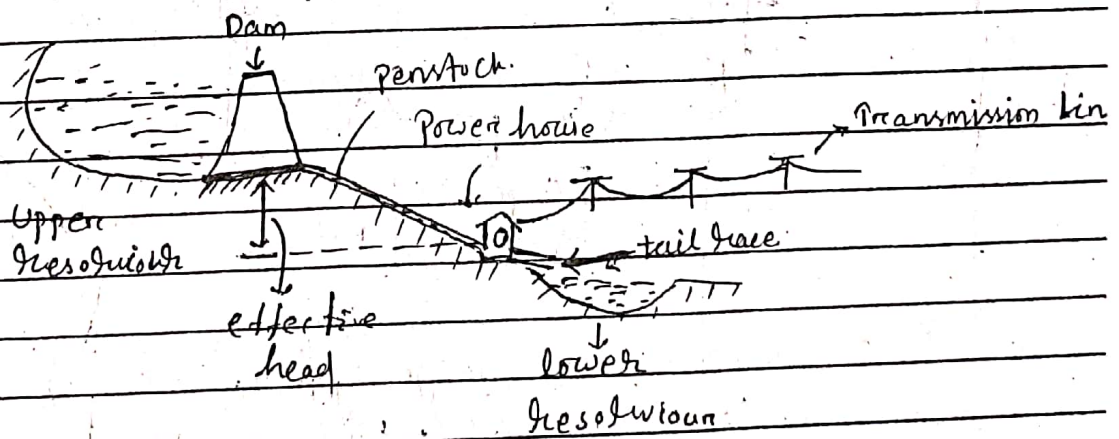 Dam
penstock.
Power house
Transmission Lin
Upper
resorvioir
tail race
effective
head
lower
resorvioun